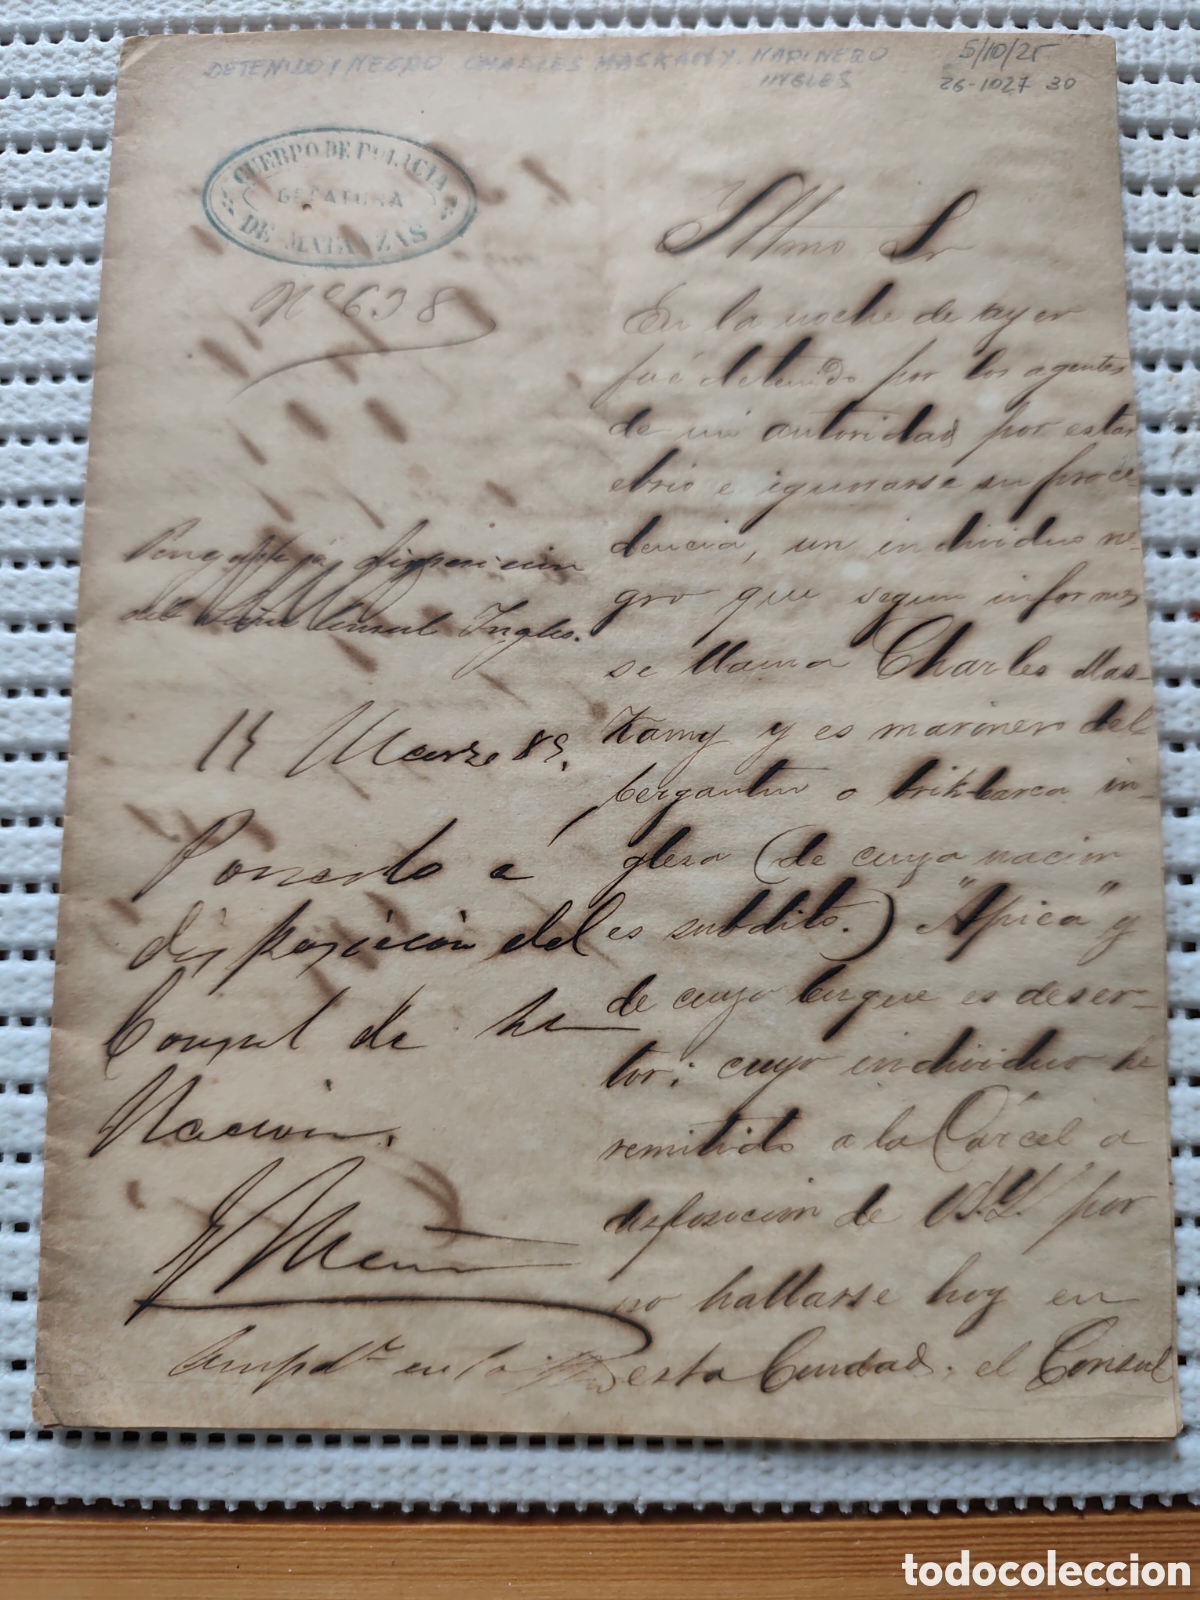 DETENIDO, NEGRO CHARLES MASKAMY. MARINERO
INGLES
5/10/25
26-1027 30
CUERPO DE POLICIA
GEFATURA
DE MATANZAS
Nº 638
Illmo Sr
En la noche de ayer
fué detenido por los agentes
de mi autoridad por estar
ebrio e ignorarse su proce-
dencia, un individuo ne-
gro que segun informes
se llama Charles Mas-
Kamy y es marinero del
bergantin o brik-barca in-
glesa (de cuya nacion
es subdito.) "Apica" y
de cuyo buque es deser-
tor; cuyo individuo he
remitido a la Cárcel a
disposicion de V.S.Y. por
no hallarse hoy en
esta Ciudad, el Consul
Pongase á disposicion
del Señor Consul Ingles.
Marzo 89.
Puesto á
disposición del
Consul de su
Nación.
en la
todocoleccion